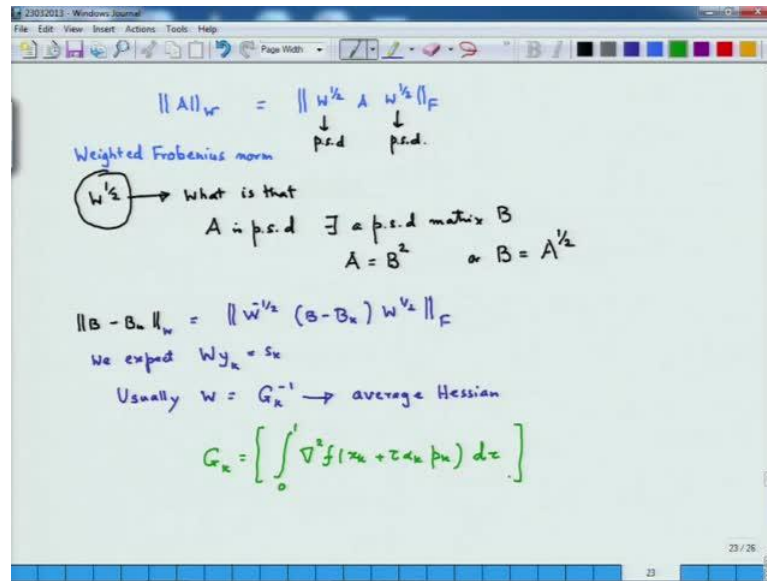 23032013 - Windows Journal
File Edit View Insert Actions Tools Help
Page Width
‖A‖_W = ‖W^{1/2} A W^{1/2}‖_F
↓ ↓
p.s.d p.s.d.
Weighted Frobenius norm
W^{1/2} → What is that
A is p.s.d ∃ a p.s.d matrix B
A = B^2 or B = A^{1/2}
‖B - B_k‖_W = ‖W^{-1/2} (B - B_k) W^{1/2}‖_F
We expect W y_k = s_k
Usually W = G_k^{-1} → average Hessian
G_k = [∫_0^1 ∇^2 f(x_k + τ α_k p_k) dτ]
23 / 26
23